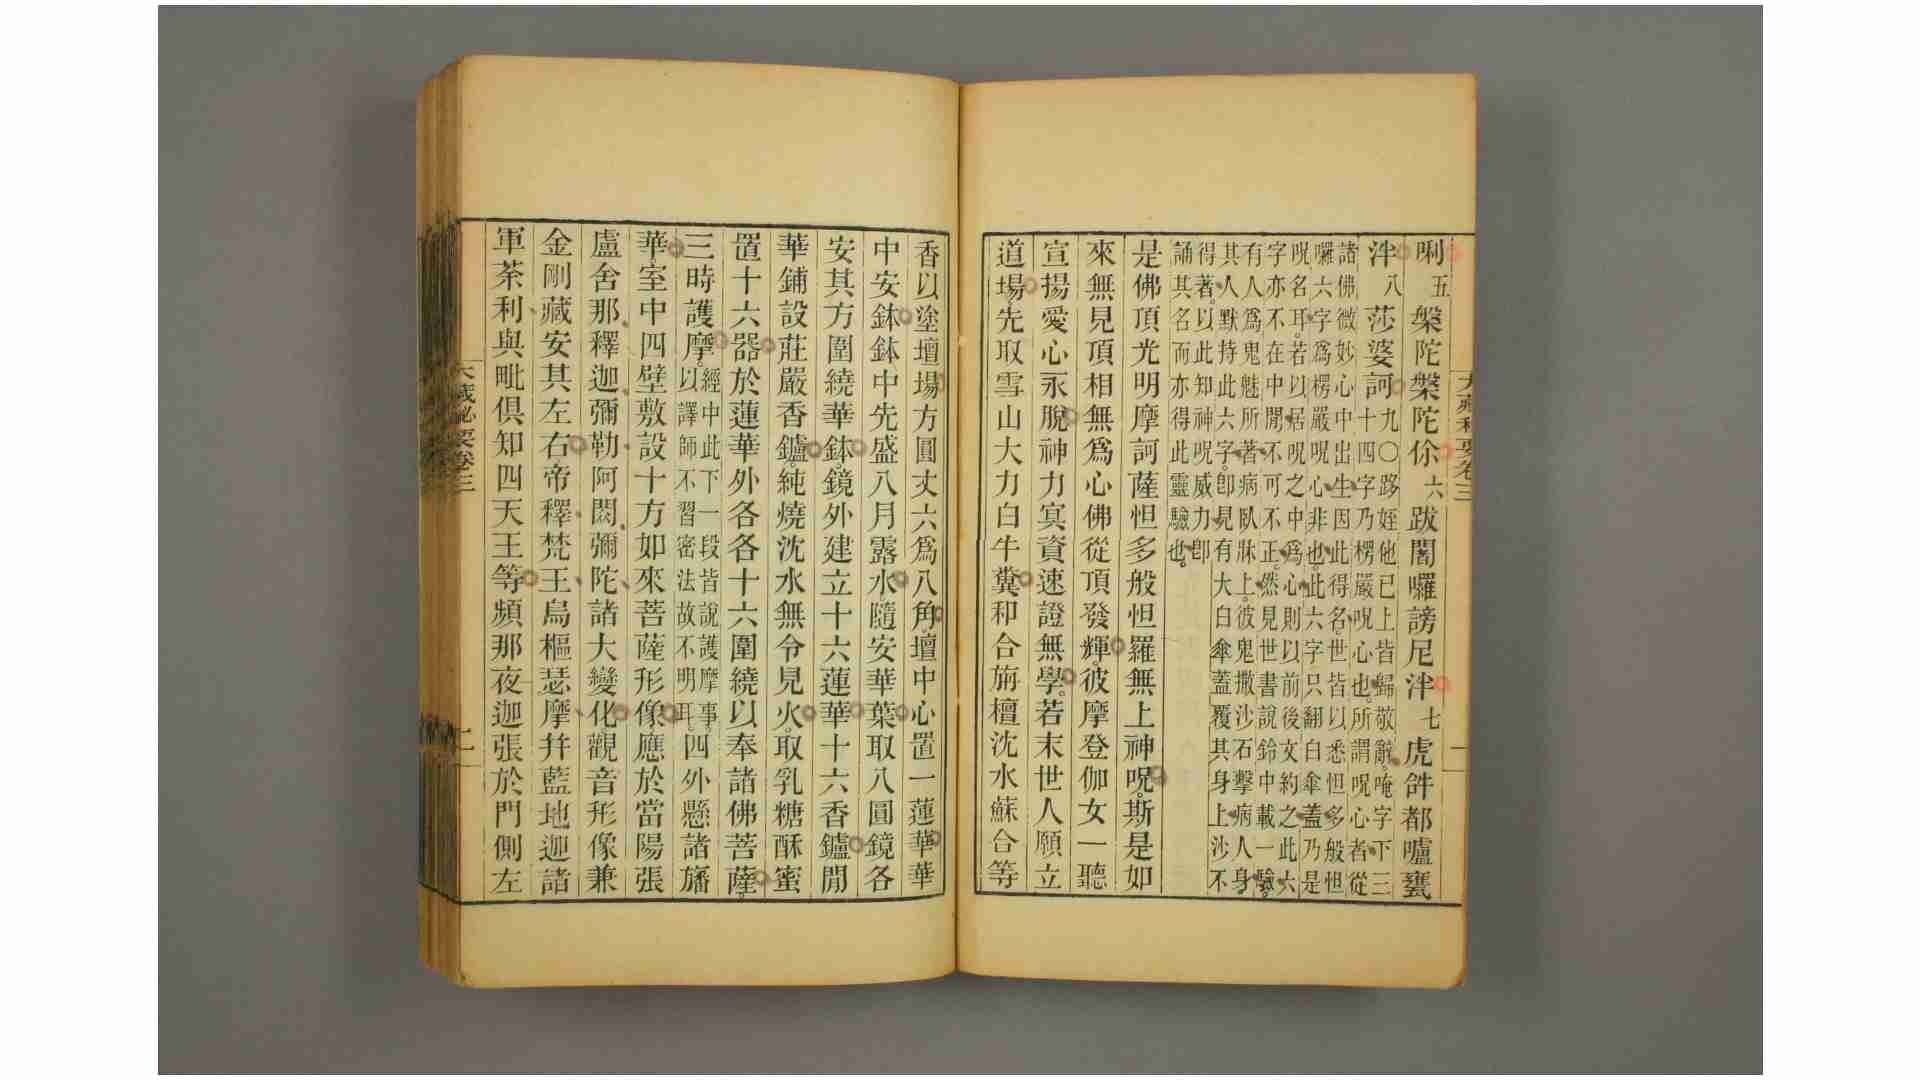 大藏秘要卷三
一
唎五槃陀槃陀你六跋闍囉謗尼泮七虎𤙖都嚧甕
泮八莎婆訶九〇路姪他已上皆歸敬辭唵字下三
十四字乃楞嚴呪心也所謂呪心者從
諸佛微妙心中出生因此得名世皆以悉怛多般怛
囉六字爲楞嚴呪心非也此六字只翻白傘蓋乃是
呪名耳若以居呪之中爲心則以前後文約之此六
字亦不在中閒不可不正然見世書說鈴中載一驗
有人爲鬼魅所著病臥牀上彼鬼撒沙石擊病人身
其人默持此六字卽見有大白傘蓋覆其身上沙不
得著以此知神呪威力卽
誦其名而亦得此靈驗也
是佛頂光明摩訶薩怛多般怛羅無上神呪斯是如
來無見頂相無爲心佛從頂發輝彼摩登伽女一聽
宣揚愛心永脫神力冥資速證無學若末世人願立
道場先取雪山大力白牛糞和合旃檀沈水蘇合等
香以塗壇場方圓丈六爲八角壇中心置一蓮華華
中安鉢鉢中先盛八月露水隨安華葉取八圓鏡各
安其方圍繞華鉢鏡外建立十六蓮華十六香鑪閒
華鋪設莊嚴香鑪純燒沈水無令見火取乳糖酥蜜
置十六器於蓮華外各各十六圍繞以奉諸佛菩薩
三時護摩經中此下一段皆說護摩事
以譯師不習密法故不明耳四外懸諸旛
華室中四壁敷設十方如來菩薩形像應於當陽張
盧舍那釋迦彌勒阿閦彌陀諸大變化觀音形像兼
金剛藏安其左右帝釋梵王烏樞瑟摩幷藍地迦諸
軍荼利與毗俱知四天王等頻那夜迦張於門側左
大藏秘要卷三
二